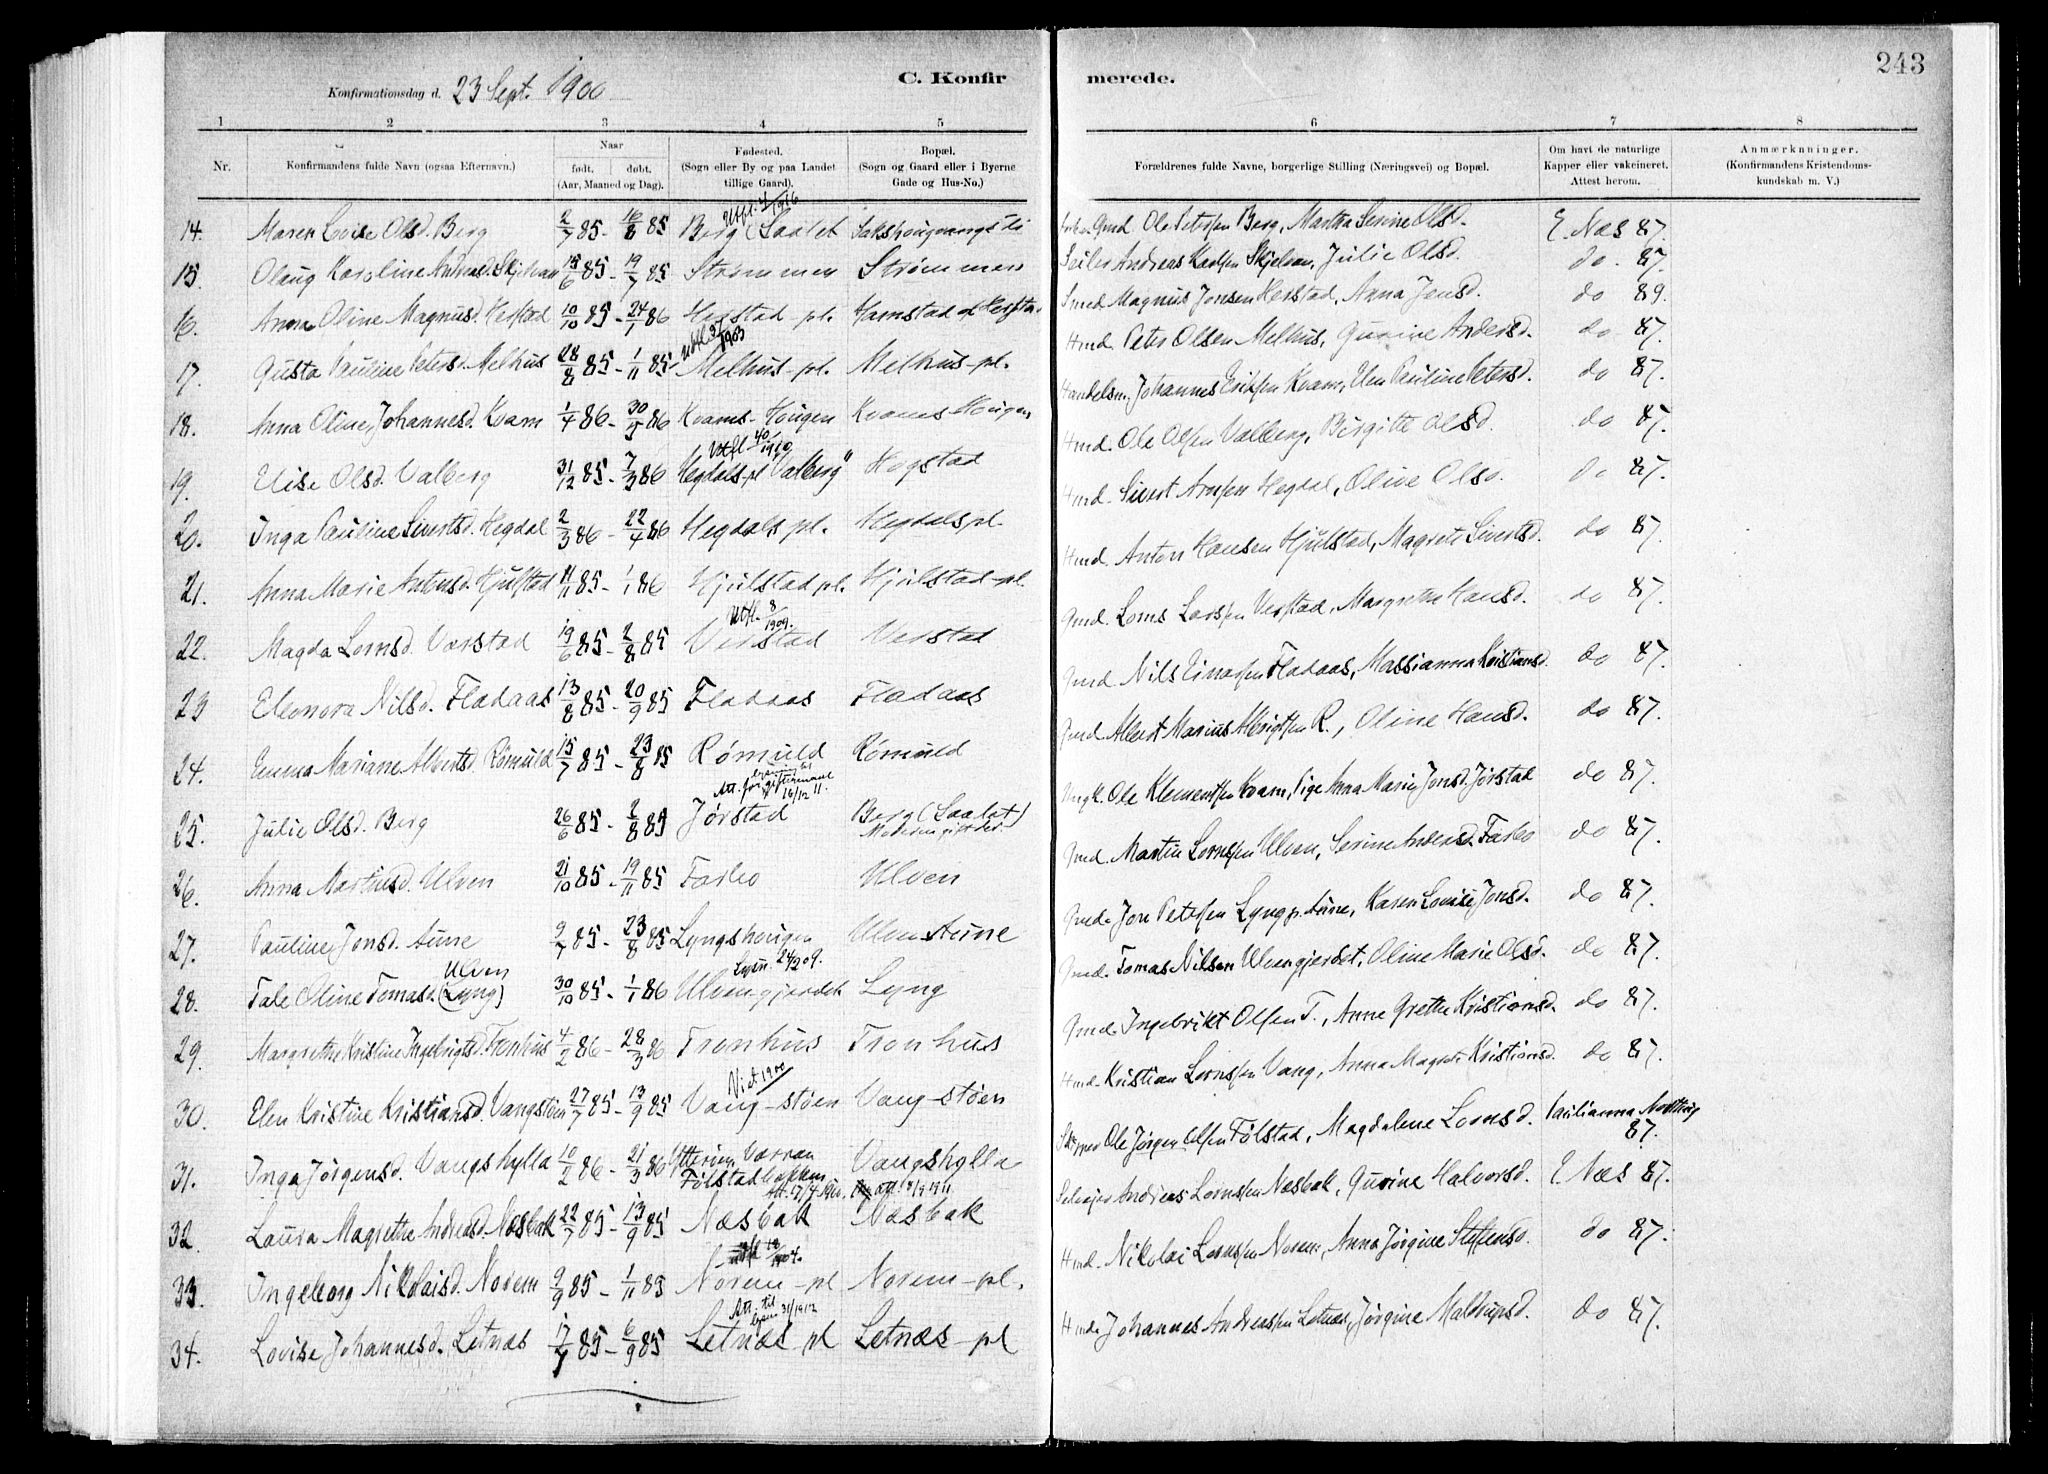 243
C. Konfirmerede.
Konfirmationsdag d. 23 Sept. 1900
1 2 3 4 5 6 7 8
Nr. Konfirmandens fulde Navn (ogsaa Efternavn.) Naar født. døbt. (Aar, Maaned og Dag). Fødested. (Sogn eller By og paa Landet tillige Gaard). Bopæl. (Sogn og Gaard eller i Byerne Gade og Hus-No.) Forældrenes fulde Navne, borgerlige Stilling (Næringsvei) og Bopæl. Om havt de naturlige Kapper eller vakcineret. Attest herom. Anmærkninger. (Konfirmandens Kristendomskundskab m. V.)
14. Maren Lovise Olsd. Berg 2/7 85 - 16/8 85 Berg (Saalet Gmd. Ole Petersen Berg, Martha Serine Olsd. E. Næs 87.
15. Olaug Karoline Andreasd. Skjelvan 15/6 85 - 19/7 85 Strømmen Strømmen Andreas Karlsen Skjelvan, Julie Olsd. do. 87.
16. Anna Oline Magnusd. Herstad 10/10 85 - 24/1 86 Herstad-pl. Smed Magnus Jonsen Herstad, Anna Jensd. do 89.
Utfl. 1903
17. Gusta Pauline Petersd. Melhus 28/8 85 - 1/11 85 Melhus-pl. Melhus-pl. Hmd. Peter Olsen Melhus, Gurine Andersd. do 87.
18. Anna Oline Johannesd. Kvam 1/4 86 - 30/5 86 Kvams-Hougen Kvams Hougen Handelsm. Johannes Eriksen Kvam, Elen Pauline Petersd. do 87.
Utfl. 40/1910
19. Elise Olsd. Valberg 31/12 85 - 7/3 86 Hegdals-pl "Valberg" Hogstad Hmd. Ole Olsen Valberg, Birgitte Olsd. do 87.
20. Inga Pauline Sivertsd. Hegdal 2/3 86 - 22/4 86 Hegdals pl. Hegdalspl. Hmd. Sivert Arnsen Hegdal, Olive Olsd. do 87.
21. Anna Marie Antonsd. Hjulstad 11/11 85 - 1/1 86 Hjulstad pl. Hjulstad-pl. Hmd. Anton Hansen Hjulstad, Magrete Sivertsd. do 87.
Utfl. 8/1909.
22. Magda Lornsd. Verstad 19/6 85 - 2/8 85 Verstad Verstad Gmd. Lorns Larssen Verstad, Margrethe Hansd. do 87.
23 Eleonora Nilsd. Fladaas 13/8 85 - 20/9 85 Fladaas Fladaas Gmd. Nils Einarsen Fladaas, Massianna Kristiansd. do 87.
24. Emma Mariane Albertsd. Rømuld 15/7 85 - 23/8 85 Rømuld Rømuld Gmd. Albert Marius Albrigtsen R., Oline Hansd. do 87.
16/12 11.
25. Julie Olsd. Berg 26/6 85 - 2/8 85 Jørstad Berg (Saalet) Moderen gift der. Ungk. Ole Klementsen Kvam, Pige Anna Marie Jonsd. Jørstad do 87.
26. Anna Martinsd. Ulven 21/10 85 - 19/11 85 Farbo Ulven Gmd. Martin Lornssen Ulven, Serine Andersd. Farbo do 87.
27. Pauline Jonsd. Aune 9/7 85 - 23/8 85 Lyngshougen Ulven Aune Gmd. Jon Petersen Lyng p. Aune, Karen Lovise Jonsd. do 87.
Lysn. 24/2 09.
28. Tale Oline Tomasd. Ulven (Lyng) 30/10 85 - 1/1 86 Ulvengjerdet Lyng Gmd. Tomas Nilsen Ulvengjerdet, Oline Marie Olsd. do 87.
29. Margrethe Kristine Ingebrigtsd. Tronhus 4/2 86 - 28/3 86 Tronhus Tronhus Gmd. Ingebrikt Olsen T., Anne Grethe Kristiansd. do 87.
Viet 1900
30. Elen Kristine Kristiansd. Vangstøen 27/7 85 - 13/9 85 Vang-støen Vang-støen Hmd. Kristian Lornssen Vang, Anna Magrete Kristiansd. do 87.
31. Inga Jørgensd. Vangshylla 10/2 86 - 21/3 86 Ytterøen Værran Følstadbakken Vangshylla Ole Jørgen Olsen Følstad, Magdalene Lornsd. 87.
32. Laura Magrethe Andreasd. Næsbak 22/7 85 - 13/9 85 Næsbak Næsbak Selveier Andreas Lornssen Næsbak, Gurine Halvorsd. E. Næs 87.
33. Ingeborg Nikolaisd. Norem 9/9 85 - 1/11 85 Norem-pl Norem-pl. Hmd. Nikolai Lornssen Norem, Anna Jørgine Steffensd. do 87.
Att. til lysn. 31/1912
34. Lovise Johannesd. Letnæs 17/7 85 - 6/9 85 Letnæs-pl Letnæs-pl Hmd. Johannes Andreassen Letnæs, Jørgine do 87.